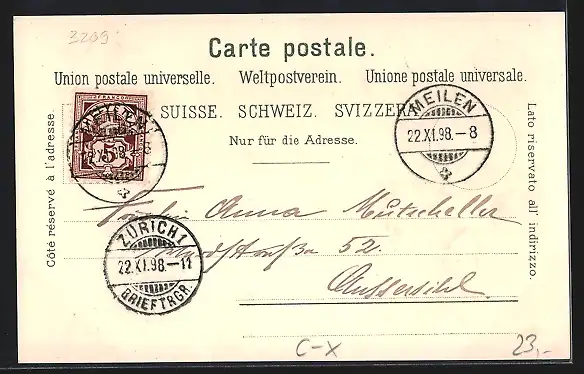 3209
Carte postale.
Union postale universelle. Weltpostverein. Unione postale universale.
SUISSE. SCHWEIZ. SVIZZERA
Nur für die Adresse.
Côté réservé à l'adresse.
Lato riservato all' indirizzo.
FRANCO
5
MEILEN
22.XI.98.-8
MEILEN
22.XI.98.-8
Fräulein Anna Mutscheller
52.
Aussersihl
ZÜRICH 1
22.XI.98.-11
BRIEFTRGR
C-X
23,-